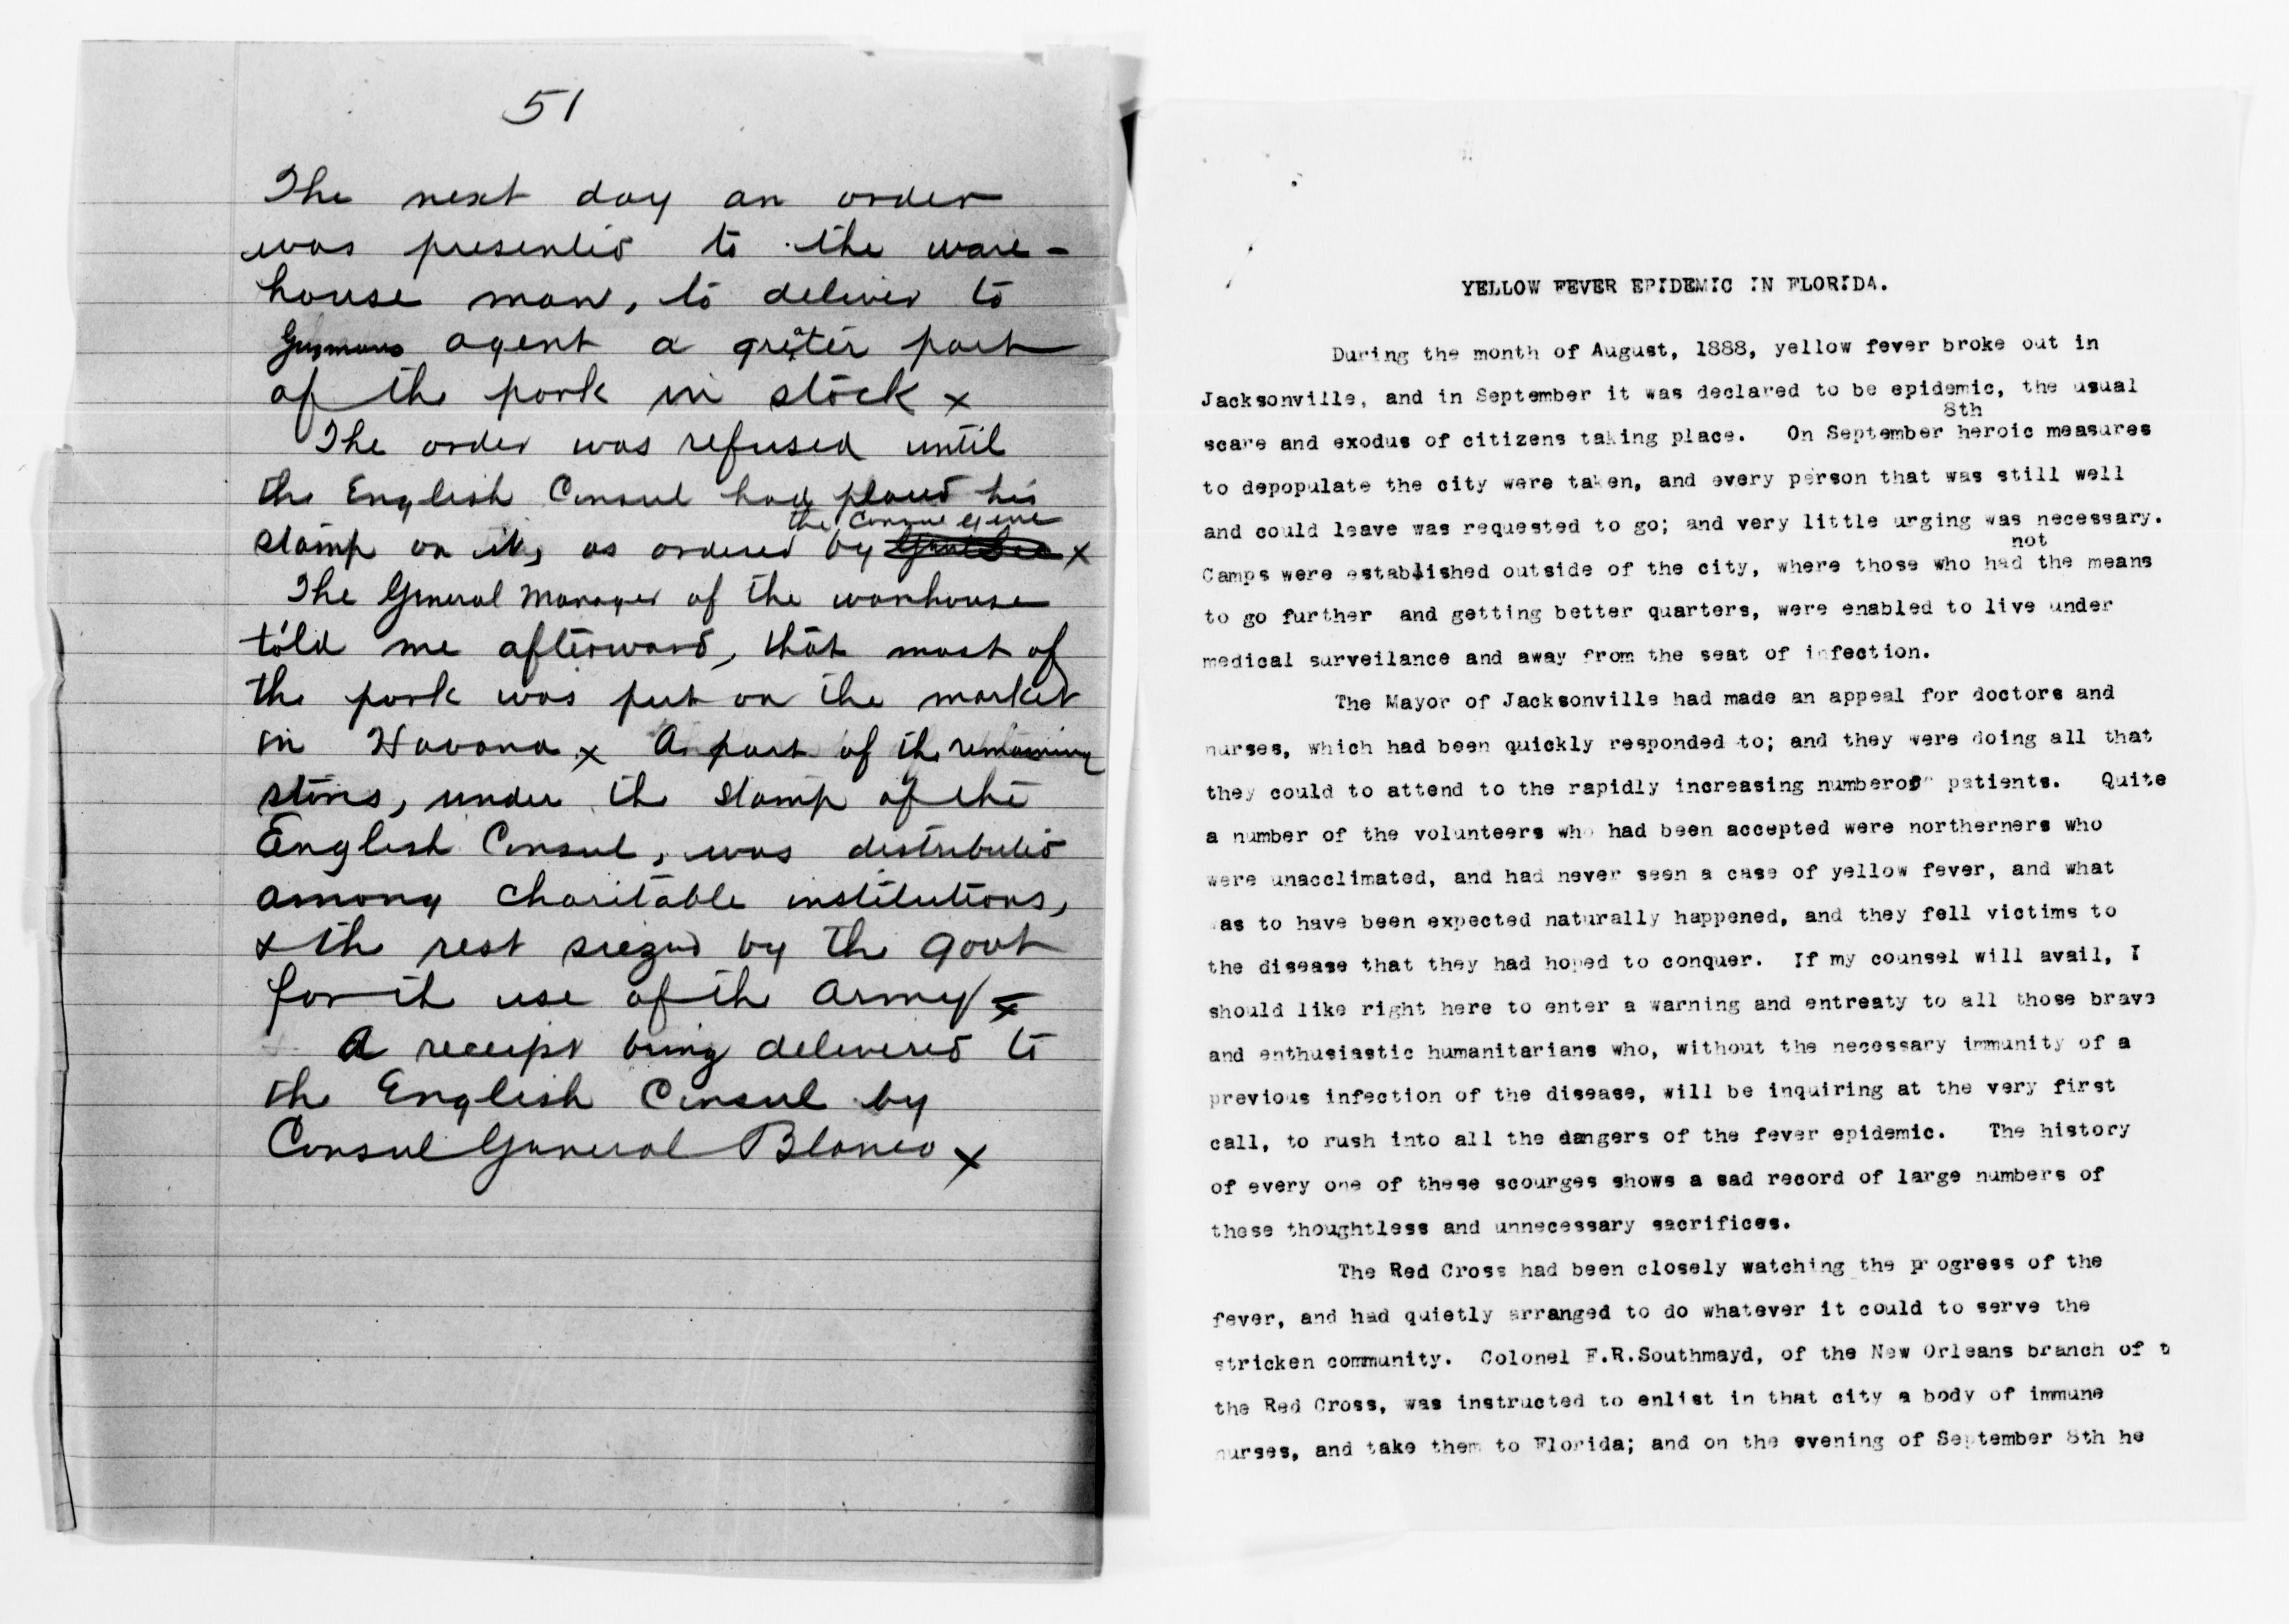 51
The next day an order
was presented to the ware-
house man, to deliver to
Guzmans agent a greater part
of the pork in stock x
The order was refused until
the English Consul had placed his
the Consul
stamp on it, as ordered by x
The General Manager of the warehouse
told me afterward, that most of
the pork was put on the market
in Havana x A part of the remaining
stores, under the stamp of the
English Consul, was distributed
among charitable institutions,
& the rest siezed by the govt
for the use of the Army x
A receipt being delivered to
the English Consul by
Consul General Blanco x
YELLOW FEVER EPIDEMIC IN FLORIDA.
During the month of August, 1888, yellow fever broke out in
Jacksonville, and in September it was declared to be epidemic, the usual
8th
scare and exodus of citizens taking place. On September heroic measures
to depopulate the city were taken, and every person that was still well
and could leave was requested to go; and very little urging was necessary.
not
Camps were established outside of the city, where those who had the means
to go further and getting better quarters, were enabled to live under
medical surveilance and away from the seat of infection.
The Mayor of Jacksonville had made an appeal for doctors and
nurses, which had been quickly responded to; and they were doing all that
they could to attend to the rapidly increasing numberof patients. Quite
a number of the volunteers who had been accepted were northerners who
were unacclimated, and had never seen a case of yellow fever, and what
was to have been expected naturally happened, and they fell victims to
the disease that they had hoped to conquer. If my counsel will avail, I
should like right here to enter a warning and entreaty to all those brave
and enthusiastic humanitarians who, without the necessary immunity of a
previous infection of the disease, will be inquiring at the very first
call, to rush into all the dangers of the fever epidemic. The history
of every one of these scourges shows a sad record of large numbers of
these thoughtless and unnecessary sacrifices.
The Red Cross had been closely watching the progress of the
fever, and had quietly arranged to do whatever it could to serve the
stricken community. Colonel F.R.Southmayd, of the New Orleans branch of t
the Red Cross, was instructed to enlist in that city a body of immune
nurses, and take them to Florida; and on the evening of September 8th he